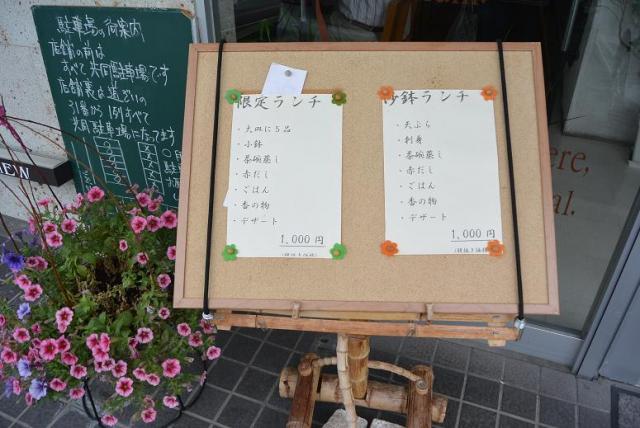 駐車場の御案内
店舗の前は
すべて共同駐車場です
店舗裏は道沿いの
すべて
共同駐車場になってます
EW
限定ランチ
・大皿に5品
・小鉢
・茶碗蒸し
・赤だし
・ごはん
・香の物
・デザート
1,000円
(税抜き価格)
砂鉢ランチ
・天ぷら
・刺身
・茶碗蒸し
・赤だし
・ごはん
・香の物
・デザート
1,000円
(税抜き価格)
ere,
al.